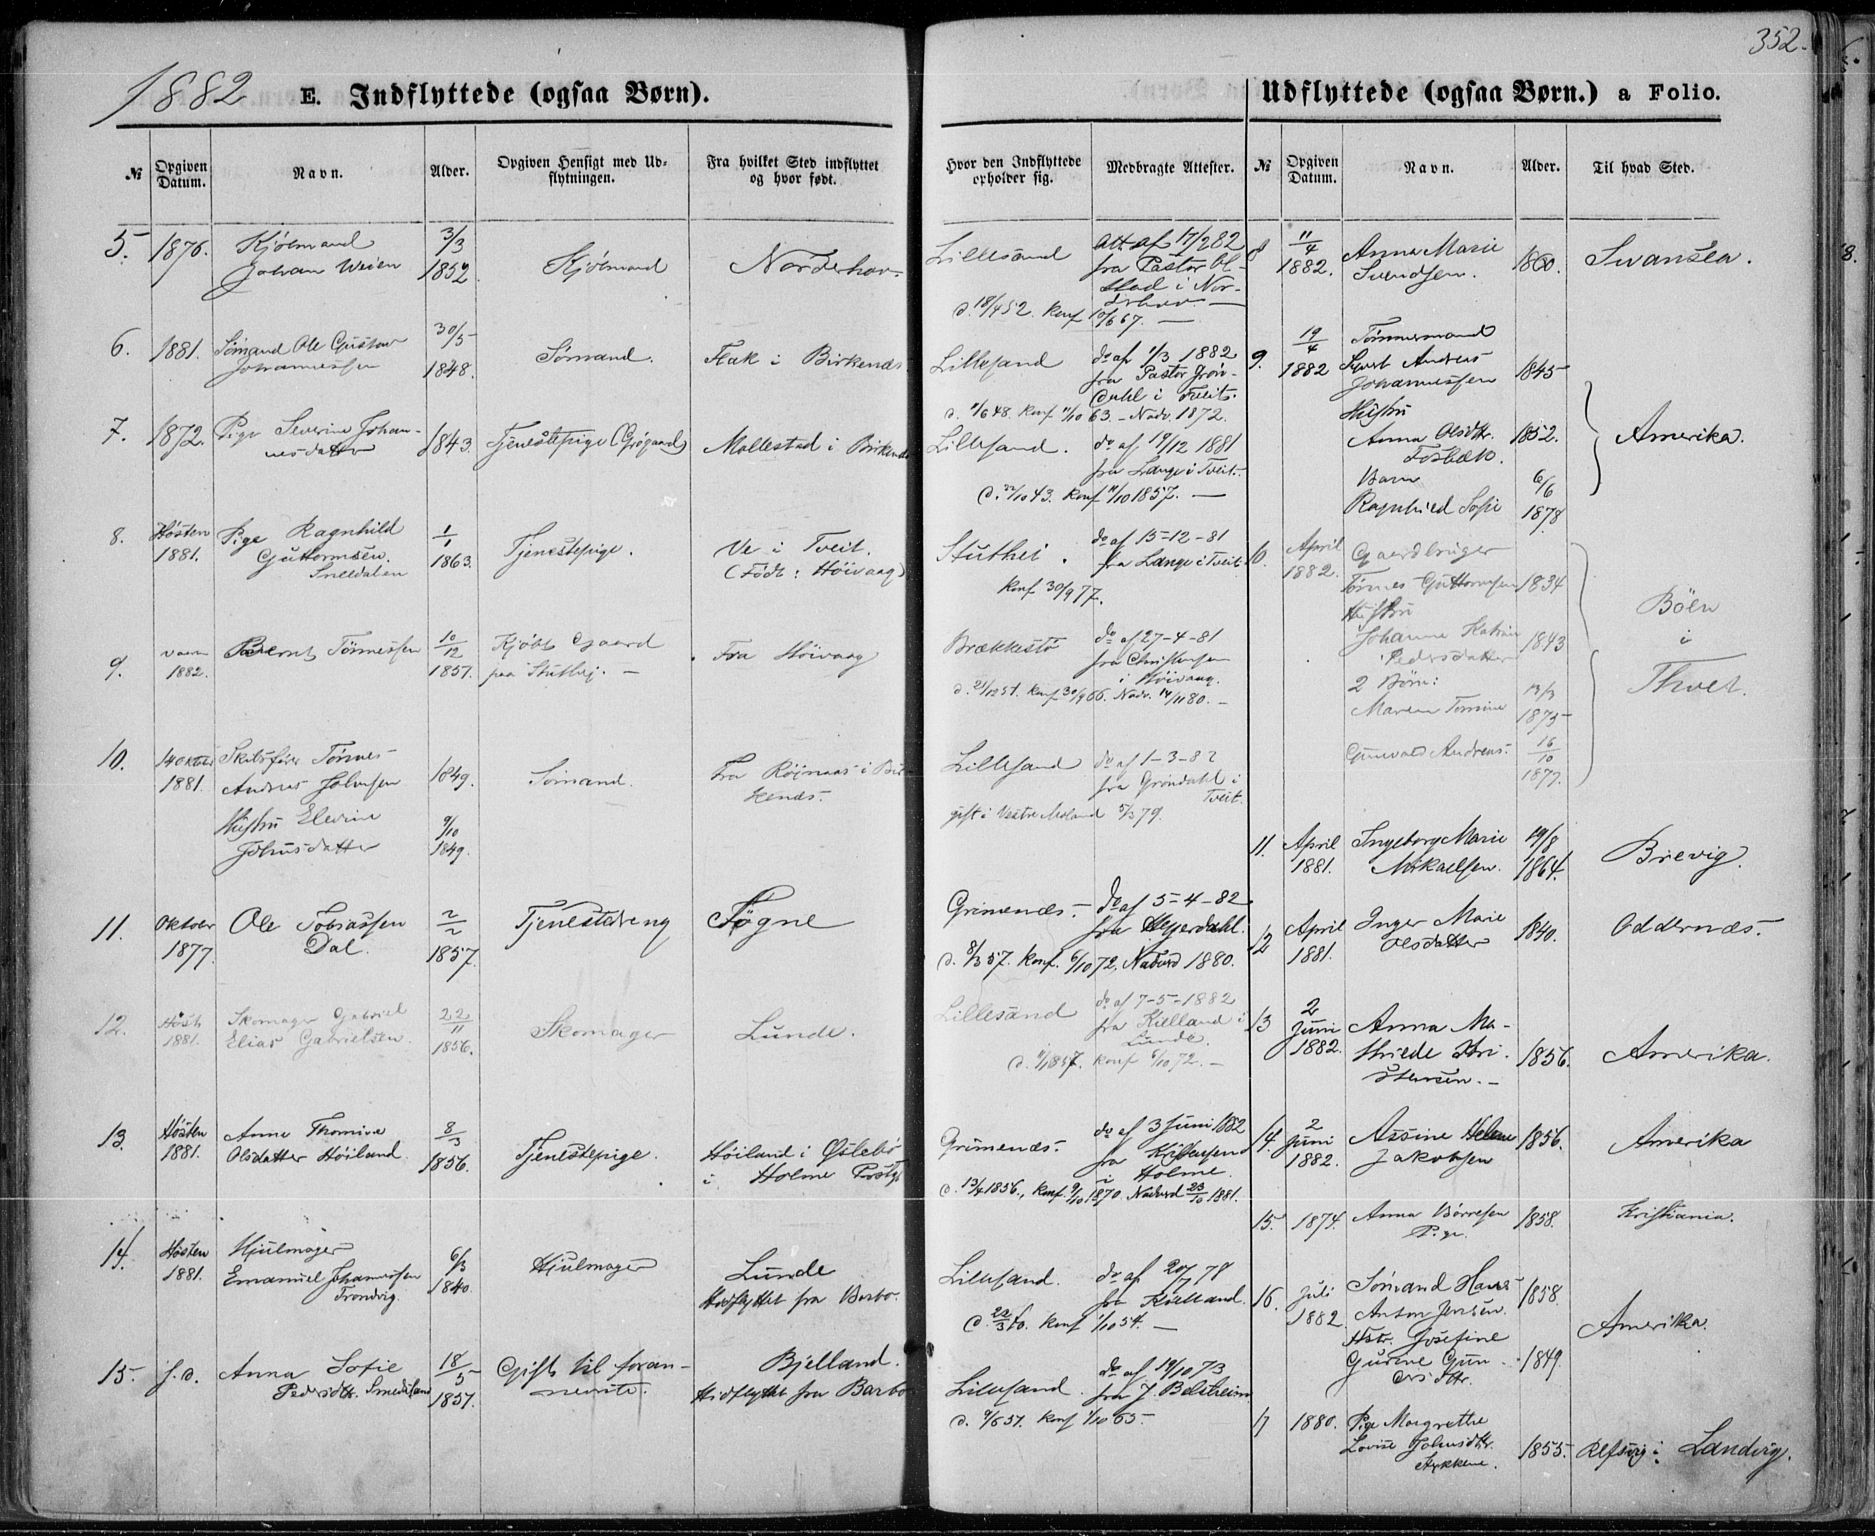 1882
E. Indflyttede (ogsaa Børn).
№
Opgiven Datum.
Navn.
Alder.
Opgiven Hensigt med Udflytningen.
Fra hvilket Sted indflyttet og hvor født.
Hvor den Indflyttede opholder sig.
Medbragte Attester.
5. 1876. Kjølmand 3/3
Johan Weien 1852 Kjølmand Norderhov Lillesand
Att. af 17/2 82
fra Pastor
stad i Nor-
derhov
d. 18/4 52. Konf 10/6 67.
6. 1881. Sømand Ole Gustav 30/5
Johannessen 1848. Sømand. Flak i Birkenæs Lillesand
do af 1/3 1882
fra Pastor Grøn-
dahl i Tveit.
d. 11/6 48. Konf 11/10 63. Nadv. 1872.
7. 1872. Pige Severine Johan-
nesdatter 1843. Tjenestepige (Grøgaard) Mollestad i Birkenæs Lillesand.
do af 19/12 1881
fra Lange i Tveit.
d. 22/10 43. Konf 11/10 1857.
8. Høsten Pige Ragnhild 1/1
1881. Guttormsen 1863. Tjenestepige. Ve i Tveit. Stuthei.
Sneldalen (Født: Høivaag)
do af 15-12-81
fra Lange i Tveit
Konf 30/9 77.
9. Vaaren Berent Tønnessen 10/12 Kjøbt Gaard Fra Høivaag Brækkestø
1882. 1851. paa Stuthej.
do af 27-4-81
fra Christensen
i Høivaag.
d. 21/12 51. Konf 30/9 66. Nadv. 14/11 80.
10. 14 Oktbr Skibsfører Tønnes
1881. Andreas Johnsen 1849. Sømand. Fra Røinaas i Bir-
kenæs. Lillesand
Hustru Elevine 9/10
Johnsdatter 1849.
do af 1-3-82
fra Grøndahl i
Tveit.
gift i Vestre Moland 5/3 79.
11. Oktober Ole Tobiassen 2/2 Tjenestedreng Søgne Grimenæs.
1877. Dal. 1857.
do af 5-4-82
fra Heyerdahl.
d. 8/3 57. Konf. 6/10 72. Nadverd 1880.
12. Høst Skomager Gabriel 22/11
1881. Elias Gabrielsen. 1856. Skomager Lunde. Lillesand
do af 7-5-1882
fra Kielland i
Lunde.
d. 9/1 857. Konf 6/10 72.
13. Høsten Anne Thomine 8/3
1881. Olsdatter Høiland. 1856. Tjenestepige. Høiland i Øslebø
i Holme Prstgd Grimenæs.
do af 3 Juni 1882
fra Kristensen
i Holme.
d. 13/4 1856., Konf. 9/10 1870. Nadverd 23/10 1881.
14. Høsten Hjulmager 6/3
1881. Emanuel Johannessen 1840. Hjulmager Lunde Lillesand.
Trondvig. Hidflyttet fra Barbo.
do af 20/7 78
fra Kielland.
d. 22/3 40. Konf 1/10 54.
15. s. d. Anna Sofie 18/5 Gift til foran- Bjelland. Lillesand.
Pedersdtr. Smedsland 1851. nævnte. Hidflyttet fra Barbo
do af 19/10 73
fra J. Belsheim
d. 9/6 51. Konf 1/10 65.
352.
Udflyttede (ogsaa Børn.) a Folio.
№
Opgiven Datum.
Navn.
Alder.
Til hvad Sted.
8 11/4 Anne Marie
1882. Svendsen. 1860. Swansea.
9. 19/4 Tømmermand
1882 Andreas
Johannessen 1845
Hustru
Anna Olsdtr. 1852. Amerika.
Fosbæk.
Barn 6/6
Ragnhild Sofie 1878
10. April Gaardbruger
1882. Tønnes Guttormsen 1834
Hustru Bøen
Johanne Katrine 1843 i
Pedersdatter
2 Børn: 13/3 Thvet.
Maren Tomine 1875
Gunvald Andreas 16/10
1877.
11. April Ingeborg Marie 19/8
1881. Mikaelsen. 1864. Brevig.
12 April Inger Marie
1881. Olsdatter 1840. Oddernæs.
13 2 Juni Anna Ma-
1882. thilde Kri- 1856. Amerika.
stensen.
14. 2 Juni Assine Helene 1856. Amerika
1882. Jakobsen
15. 1874. Anna Børresen 1858. Kristiania.
Pige.
16. Juli Sømand Hans 1858.
1882. Anton Jensen. Amerika.
Hstr. Josefine
Gurine Gun- 1849.
dersdtr.
17 1880. Pige Margrethe
Lovise Johnsdtr. 1855. i Landvig.